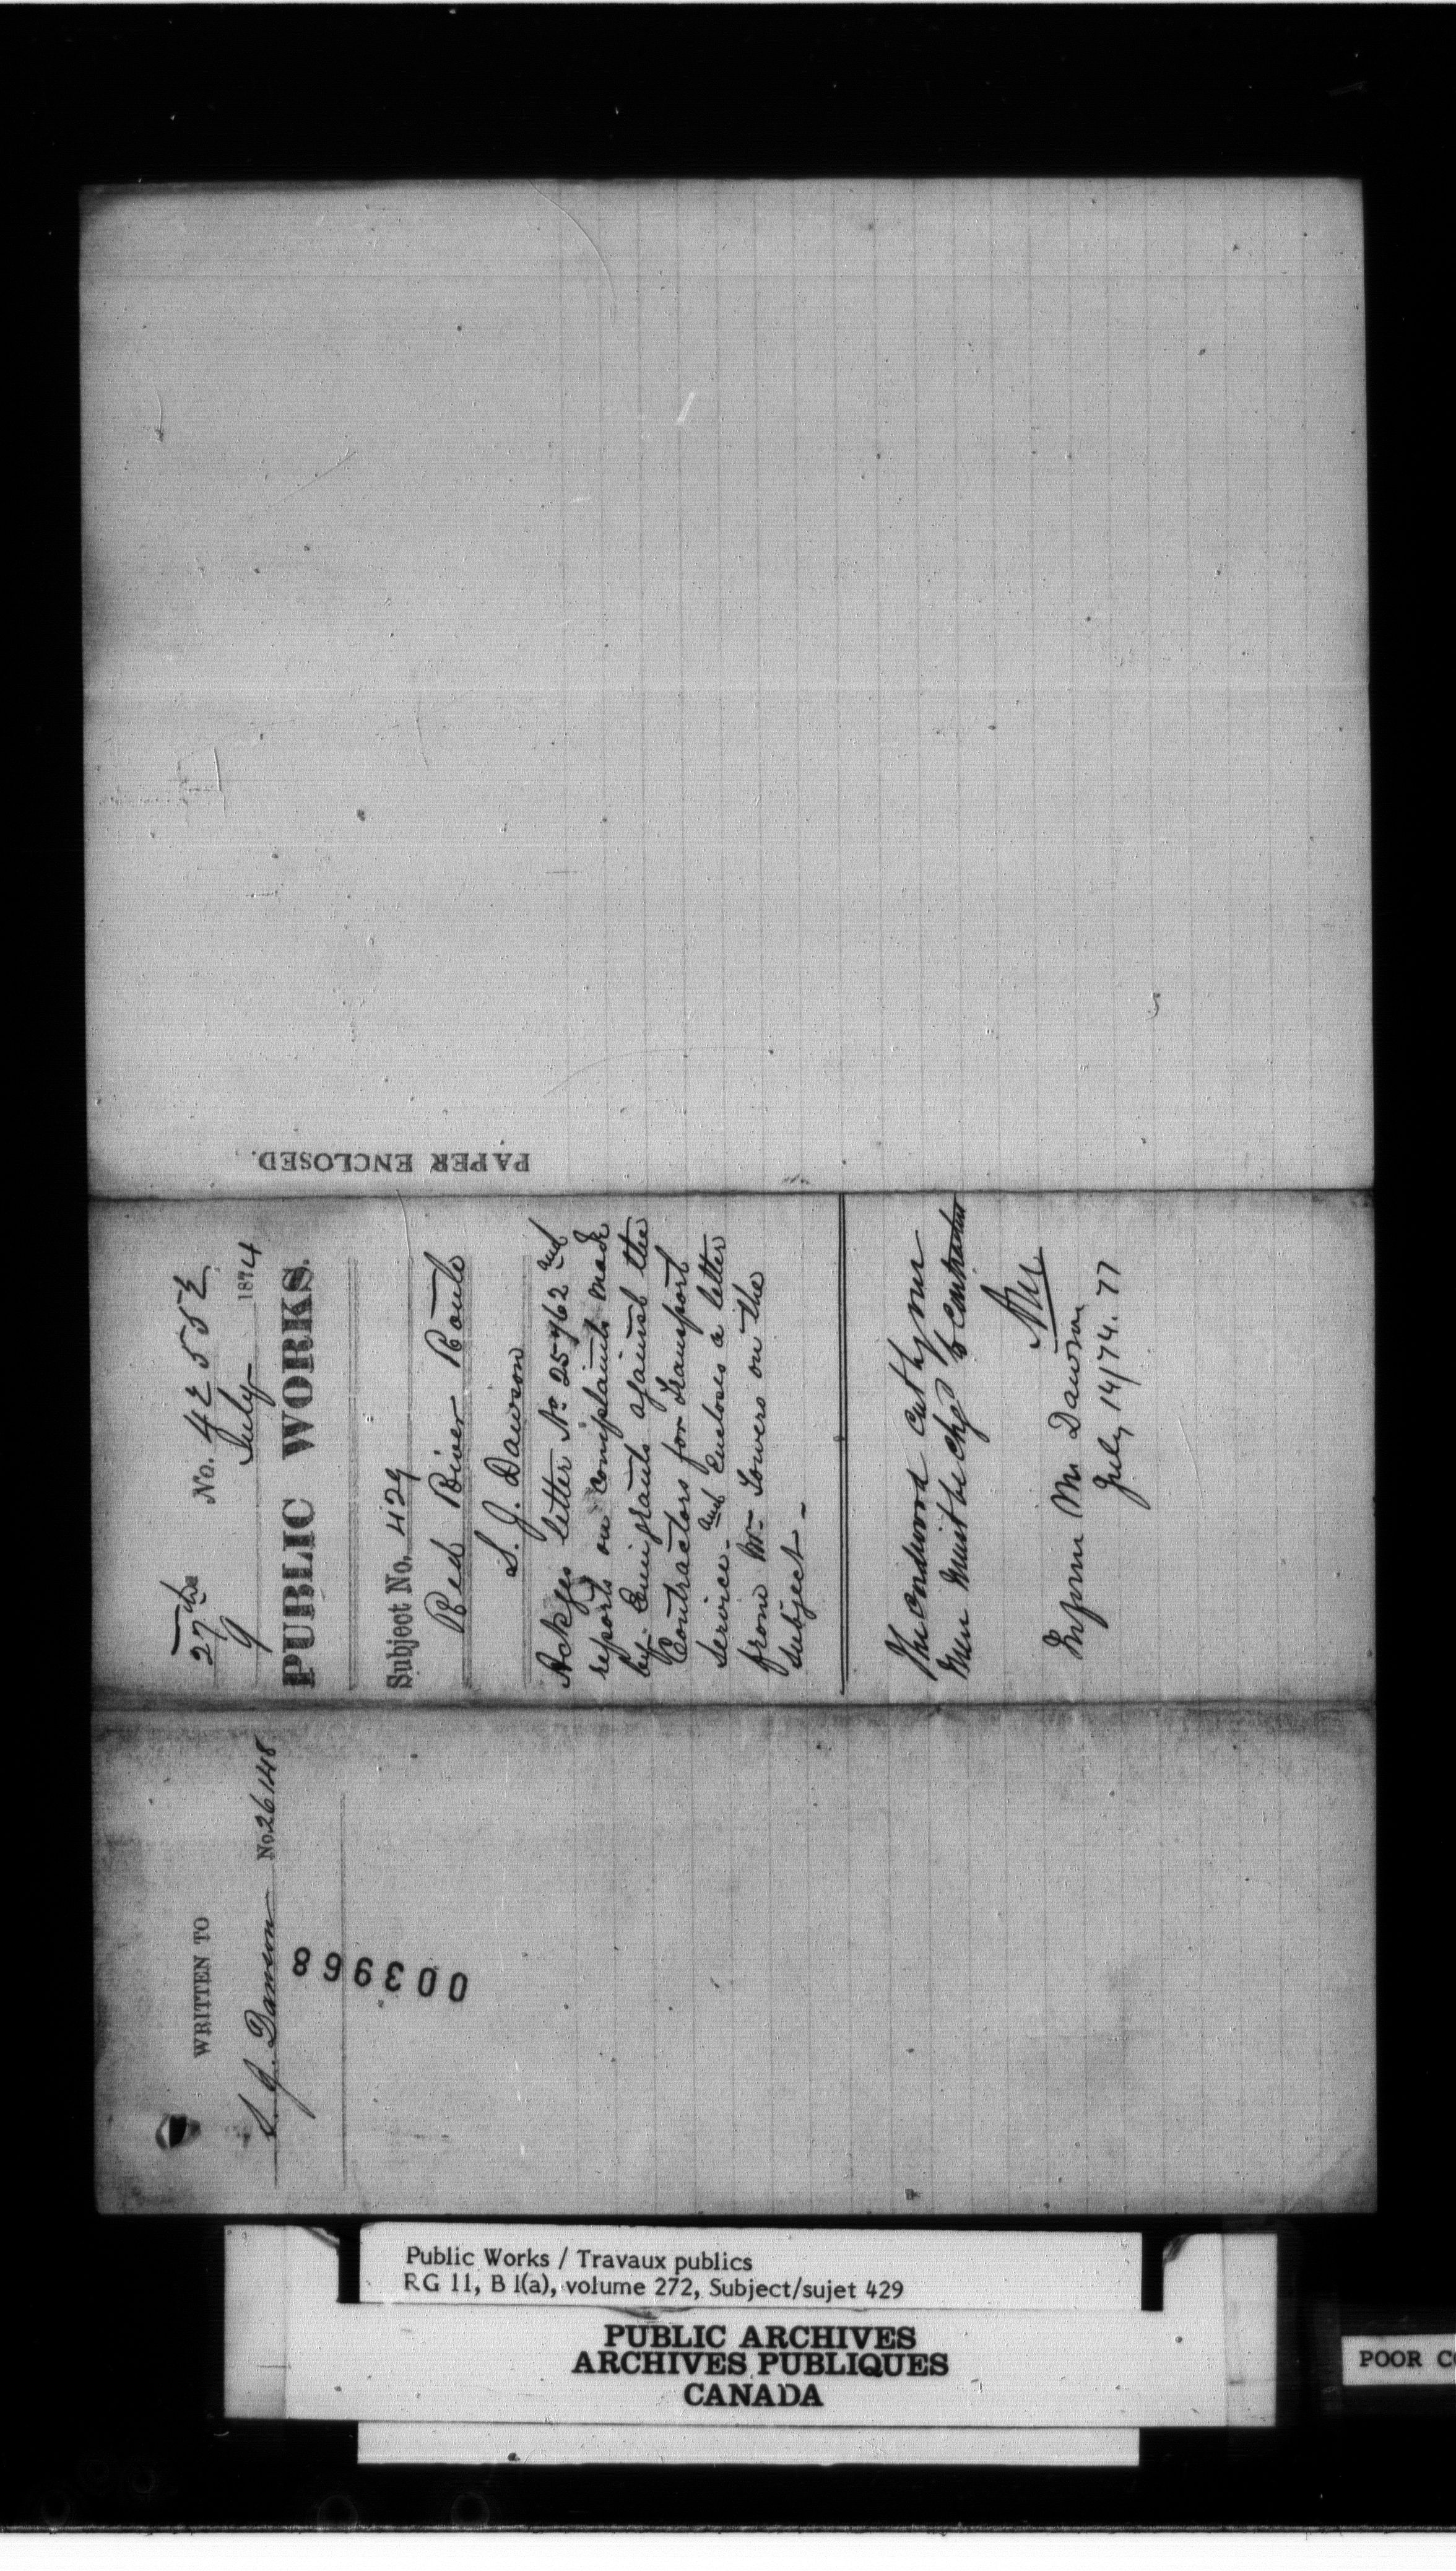 PAPER ENCLOSED.
27th No. 42552
9 July 1874
PUBLIC WORKS.
Subject No. 429
Red River Route
S. J. Dawson
Ackges letter No 25762 and
reports on complaints made
by Emigrants against the
Contractors for Transport
service. and encloses a letter
from Mr Towers on the
subject -
The cordwood cut by our
men must be chgd to contractors
Inform Mr Dawson
July 14/74.
WRITTEN TO
S. J. Dawson No. 26148
003968
Public Works / Travaux publics
RG 11, B 1(a), volume 272, Subject/sujet 429
PUBLIC ARCHIVES
ARCHIVES PUBLIQUES
CANADA
POOR